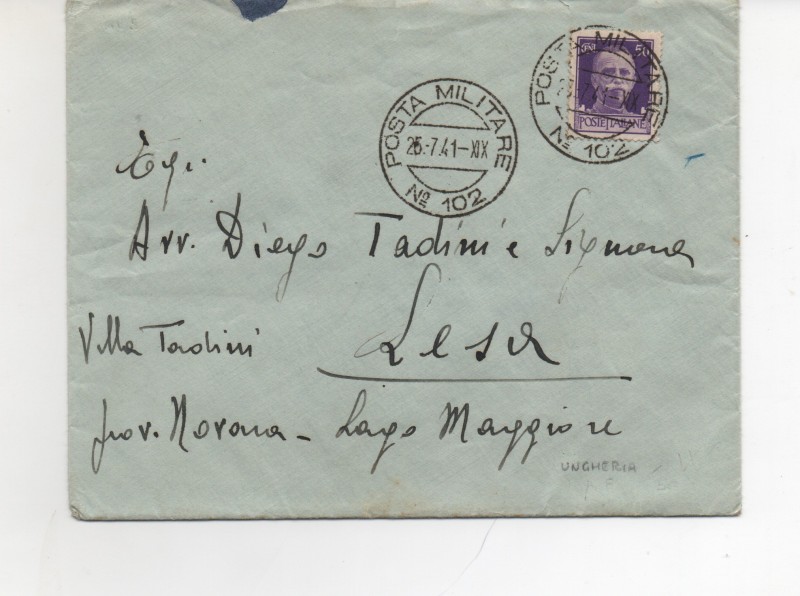 CENT. 50
POSTE ITALIANE
POSTA MILITARE
25.-7.41-XIX
Nº 102
POSTA MILITARE
25.-7.41-XIX
Nº 102
Egr.
Avv. Diego Tadini e Signora
Villa Tadini
Lesa
prov. Novara - Lago Maggiore
UNGHERIA